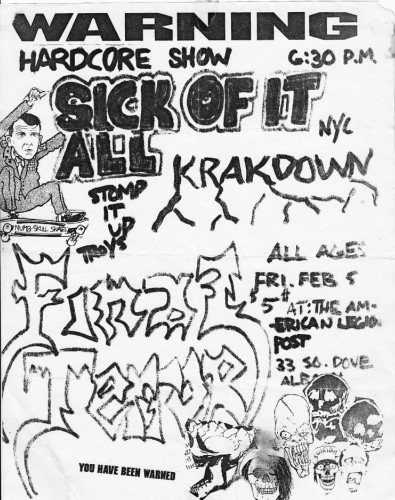 WARNING
HARDCORE SHOW 6:30 P.M.
SICK OF IT
ALL
NYC
KRAKDOWN
STOMP
IT
UP
TROYS
NUMB-SKULL SKATES
FINAL
TERROR
ALL AGES
FRI. FEB 5
5$ AT: THE AM-
ERICAN LEGION
POST
33 SO. DOVE
ALBA
YOU HAVE BEEN WARNED